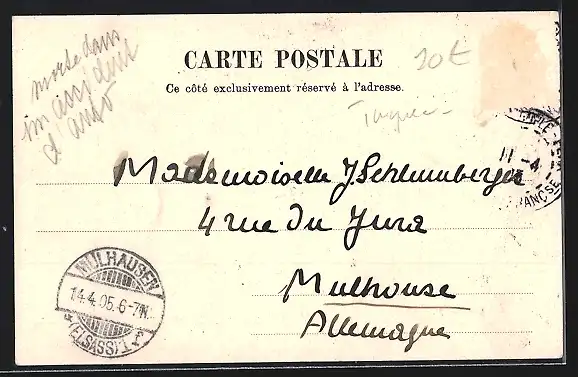 morte dans
un accident
d'auto
CARTE POSTALE
10€
Ce côté exclusivement réservé à l'adresse.
Mademoiselle J Schlumberger
4 rue du Jura
Mulhouse
Allemagne
11 -4
MÜLHAUSEN
14.4.05.6-7N.
(ELSASS) 1